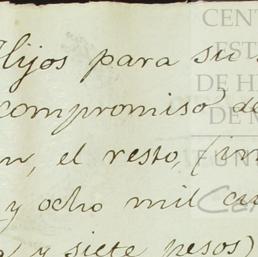 Hijos para su
compromiso de
el resto, (
y ocho mil
y siete pesos)
CENT
EST
DE H
DE M
FUN